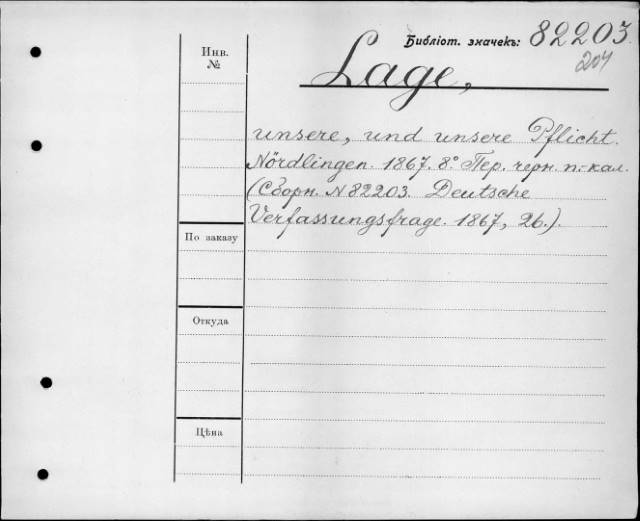 Библіот. значекъ: 82203.
204
Инв.
№
Lage,
unsere, und unsere Pflicht.
Nördlingen. 1867. 8° Пер. черн. п.-кал.
(Сборн. N 82203. Deutsche
Verfassungsfrage. 1867, 26.).
По заказу
Откуда
Цѣна